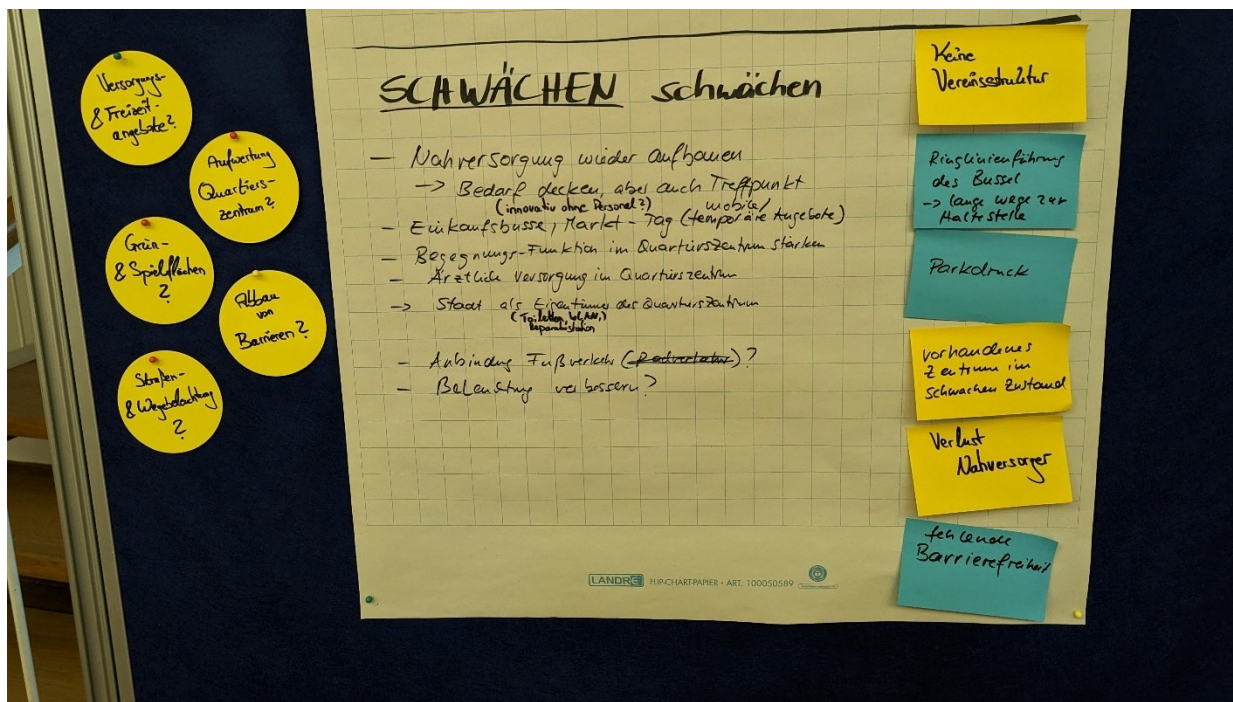 Versorgungs-
& Freizeit-
angebote?
Aufwertung
Quartiers-
zentrum?
Grün-
& Spielflächen
?
Abbau
von
Barrieren?
Straßen-
& Wegebeleuchtung
?
SCHWÄCHEN schwächen
– Nahversorgung wieder aufbauen
-> Bedarf decken, aber auch Treffpunkt
(innovativ ohne Personal?)
mobile/
– Einkaufsbusse, Markt-Tag (temporäre Angebote)
– Begegnungs-Funktion im Quartierszentrum stärken
– Ärztliche Versorgung im Quartierszentrum
-> Stadt als Eigentümer des Quartierszentrum
(Toiletten, WLAN,)
Reparaturstation
– Anbindung Fußverkehr (Radverkehr)?
– Beleuchtung verbessern?
LANDRÉ FLIP-CHART-PAPIER • ART. 100050589
Keine
Vereinsstruktur
Ringlinienführung
des Busses
-> lange Wege zur
Haltestelle
Parkdruck
vorhandenes
Zentrum im
schwachen Zustand
Verlust
Nahversorger
fehlende
Barrierefreiheit